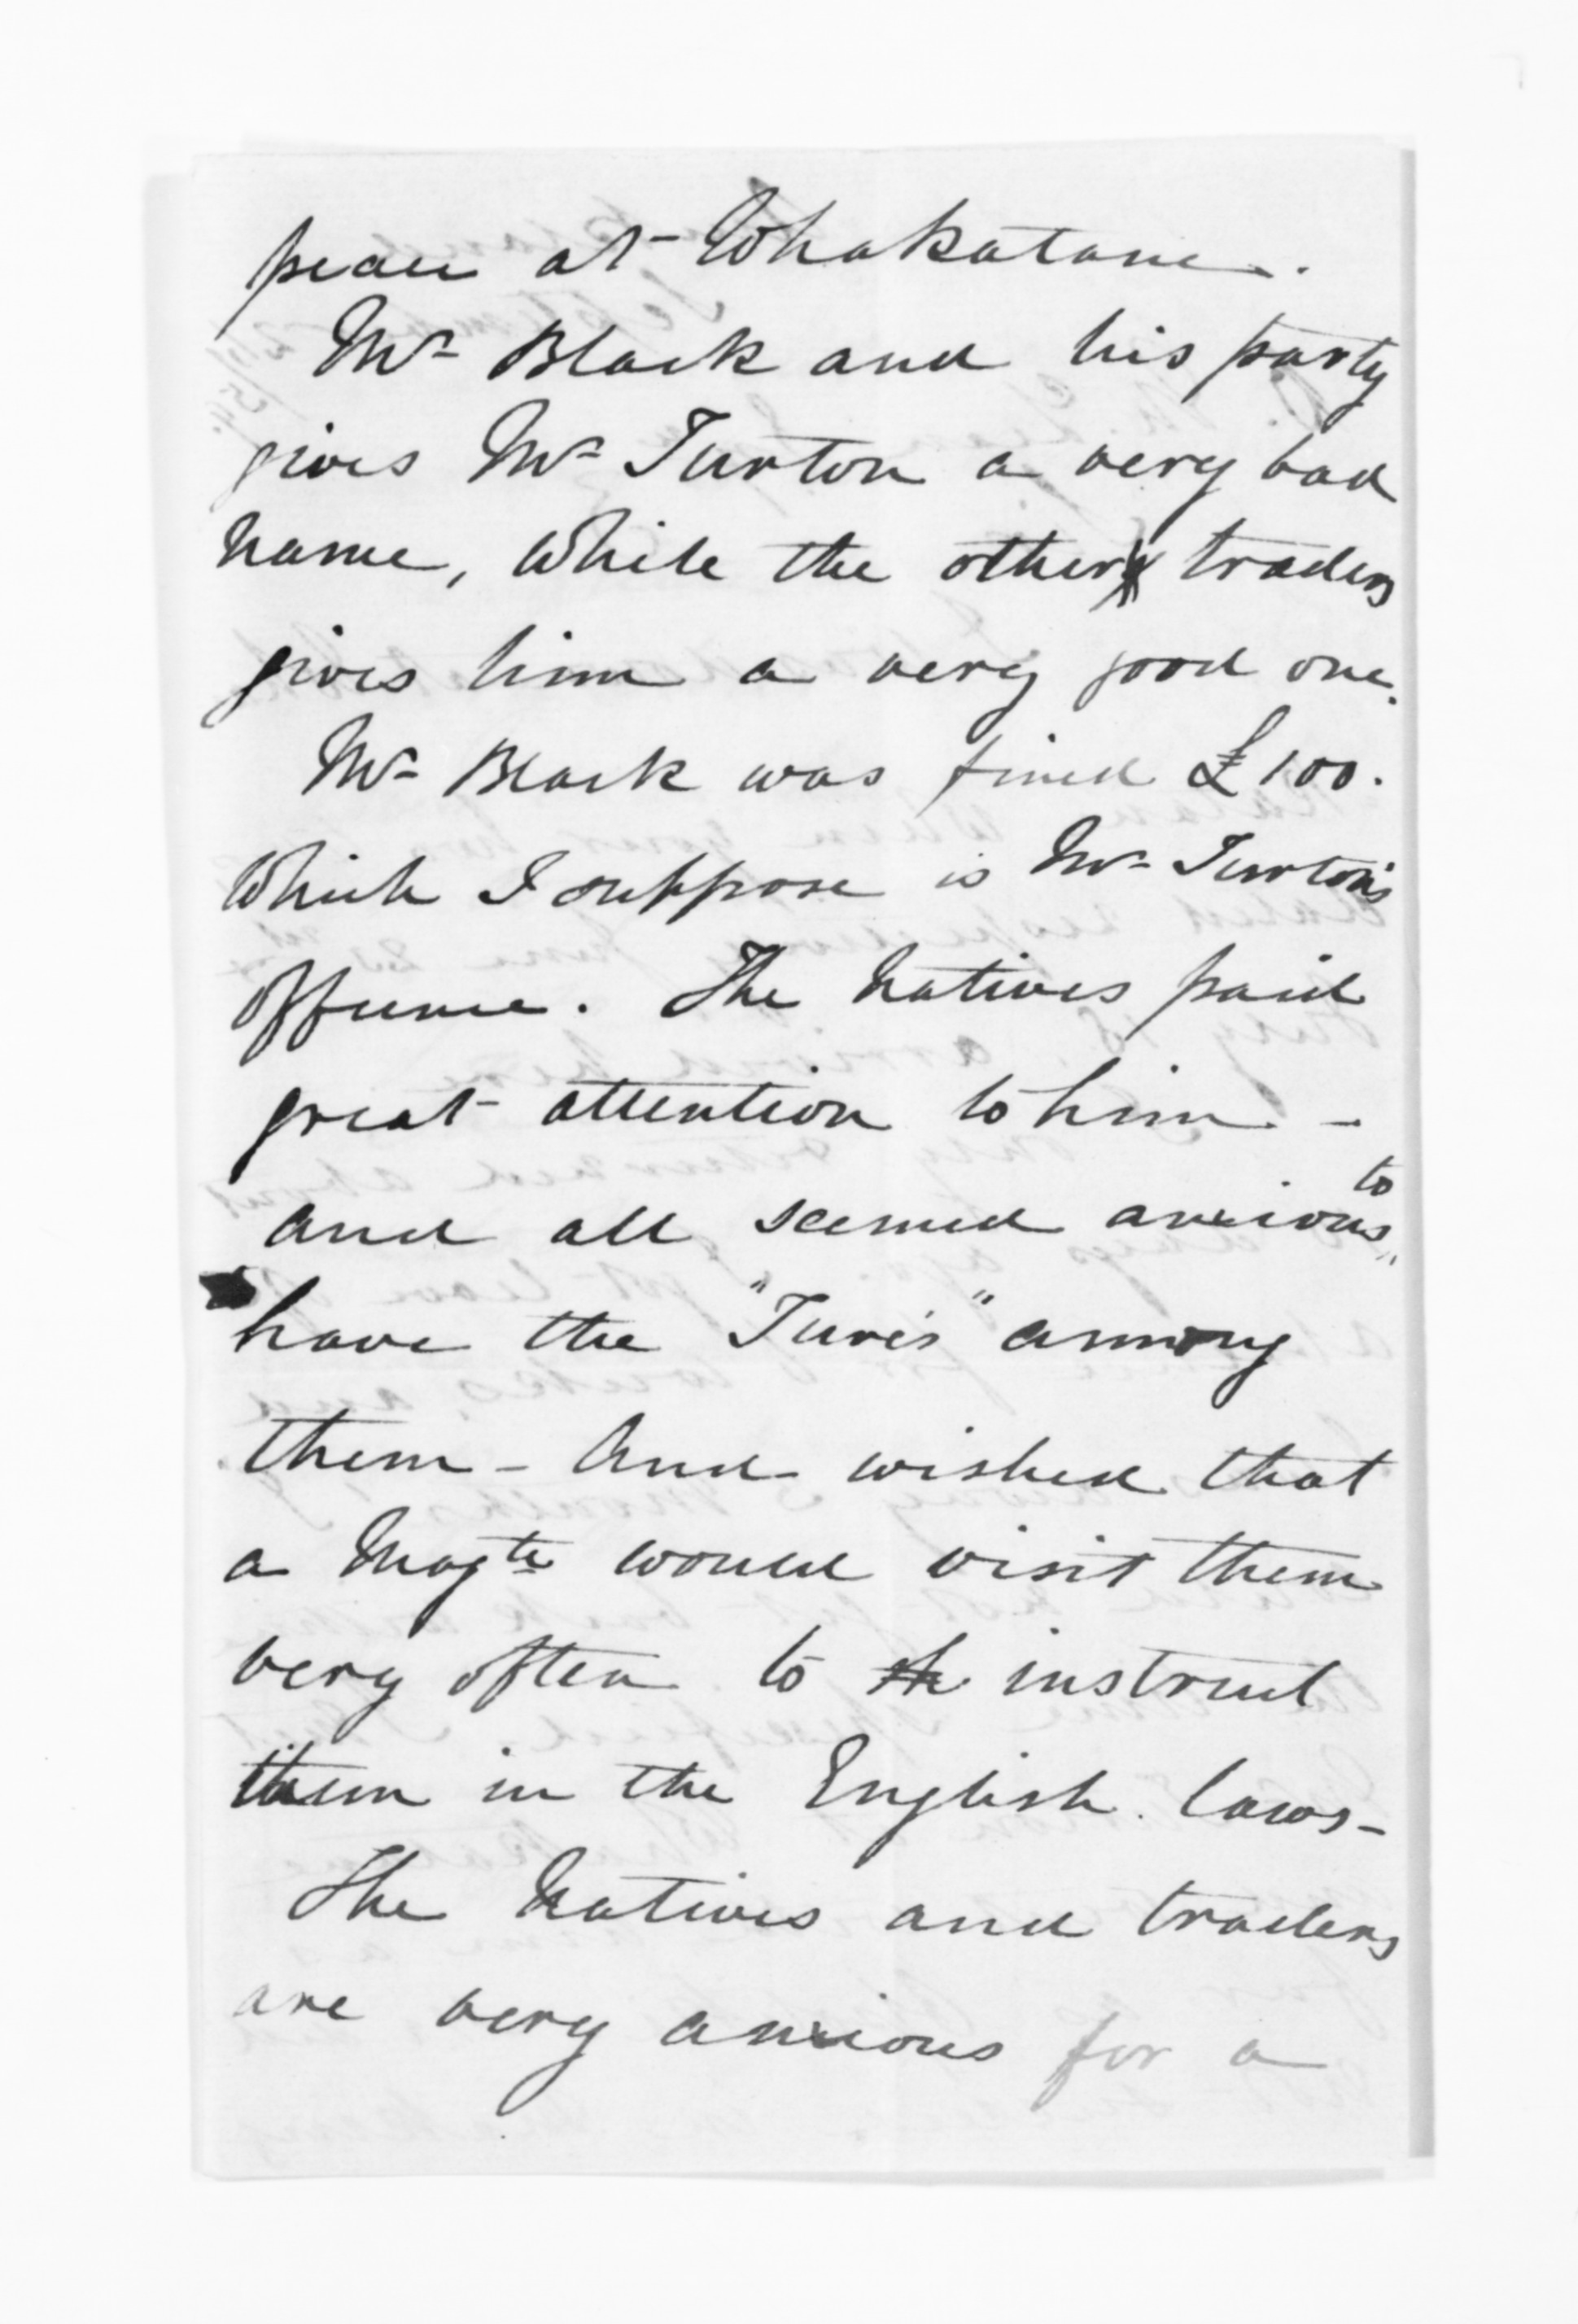 peace at Whakatane.
Mr Black and his party
gives Mr Turton a very bad
name, while the other traders
gives him a very good one.
Mr Black was fined £100.
Which I suppose is Mr Turton's
offence. The Natives paid
great attention to him -
and all seemed anxious to
have the "Ture's" among
them - And wished that
a Magte would visit them
very often to th instruct
them in the English laws -
The Natives and traders
are very anxious for a